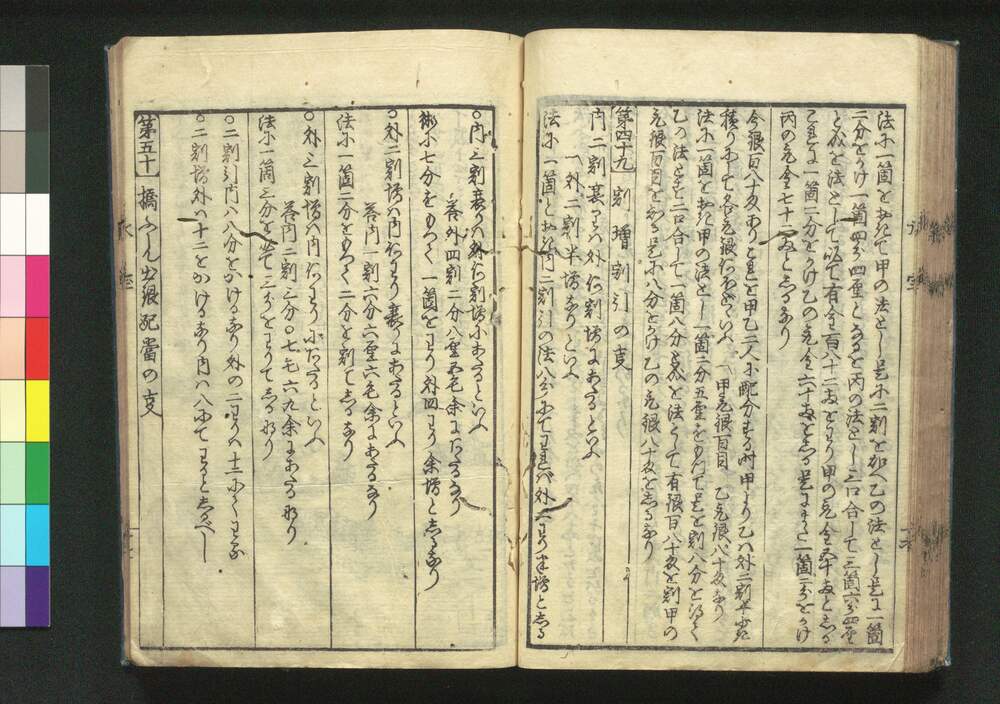 法ニ一箇を置て甲の法とし是に二割を加へ乙の法とし是に一箇
二分をかけ一箇四分四厘となるを丙の法とし三口合して三箇六分四厘
となるを法として以て有金百八十二両をわり甲の元金五十両としる
是に一箇二分をかけ乙の元金六十両としる是にまた一箇二分をかけ
丙の元金七十二両としるなり
今銀百八十匁あり是を甲乙二人に配分する時甲より乙ハ外二割半安
積りにして各元銀何ほどといふ 甲元銀百目 乙元銀八十匁なり
法に一箇を置甲の法とし一箇二分五厘をもつて是を割八分を得て
乙の法とす二口合して一箇八分となるを法として有銀百八十匁を割甲の
元銀百目をしる是に八分をかけ乙の元銀八十匁としるなり
第四十九 割増割引の事
内二割末りハ外何割増にあたるといふ
外二割半増なりといふ
法に一箇と置内二割引の法八分にてわれバ外二わり半増と志る
○内三割末りハ外何割増にあたるといふ
答外四割二分八厘五毛余にあたるなり
術に七分をもつて一箇をわり外四わり余増と志るなり
○外二割増ハ内何わり末りにあたるといふ
答内一割六分六厘六毛余にあたるなり
法に一箇二分をもつて二分を割て志るなり
○外三割増ハ内何わりにあたるといふ
答内二割三分〇七六九余にあたるなり
法に一箇三分を以て三分をわりて志るなり
○二割引内ハ八分をかけるなり外の二わりハ十二にてわる
○二割増外ハ十二をかけるなり内ハ八にてわると志るべし
第五十 橋ふしん出銀配當の事